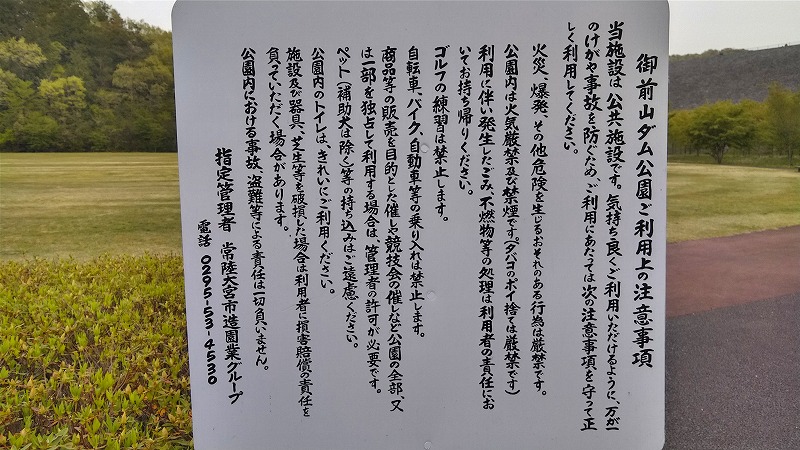 御前山ダム公園ご利用上の注意事項
当施設は、公共施設です。気持ち良くご利用いただけるように、万が一
のけがや事故を防ぐため、ご利用にあたっては次の注意事項を守って正
しく利用してください。
火災、爆発、その他危険を生じるおそれのある行為は厳禁です。
公園内は火気厳禁及び禁煙です。(タバコのポイ捨ては厳禁です)
利用に伴い発生したごみ、不燃物等の処理は利用者の責任にお
いてお持ち帰りください。
ゴルフの練習は禁止します。
自転車、バイク、自動車等の乗り入れは禁止します。
商品等の販売を目的とした催しや競技会の催しなど公園の全部、又
は一部を独占して利用する場合は、管理者の許可が必要です。
ペット(補助犬は除く)等の持ち込みはご遠慮ください。
公園内のトイレは、きれいにご利用ください。
施設及び器具、芝生等を破損した場合は利用者に損害賠償の責任を
負っていただく場合があります。
公園内における事故、盗難等による責任は一切負いません。
指定管理者 常陸大宮市造園業グループ
電話 0295-53-4530